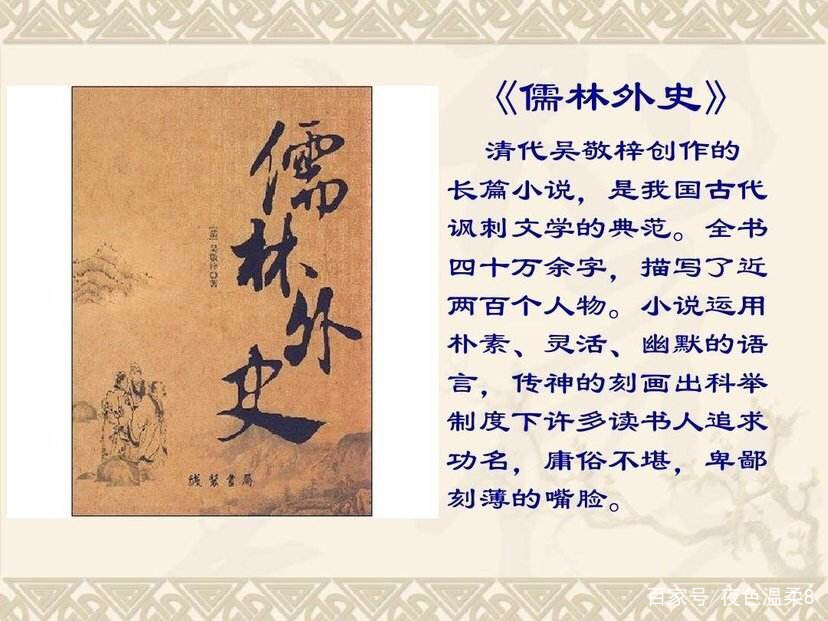 儒林外史
[清]吴敬梓◎著
线装书局
《儒林外史》
清代吴敬梓创作的
长篇小说，是我国古代
讽刺文学的典范。全书
四十万余字，描写了近
两百个人物。小说运用
朴素、灵活、幽默的语
言，传神的刻画出科举
制度下许多读书人追求
功名，庸俗不堪，卑鄙
刻薄的嘴脸。
百家号/夜色温柔8